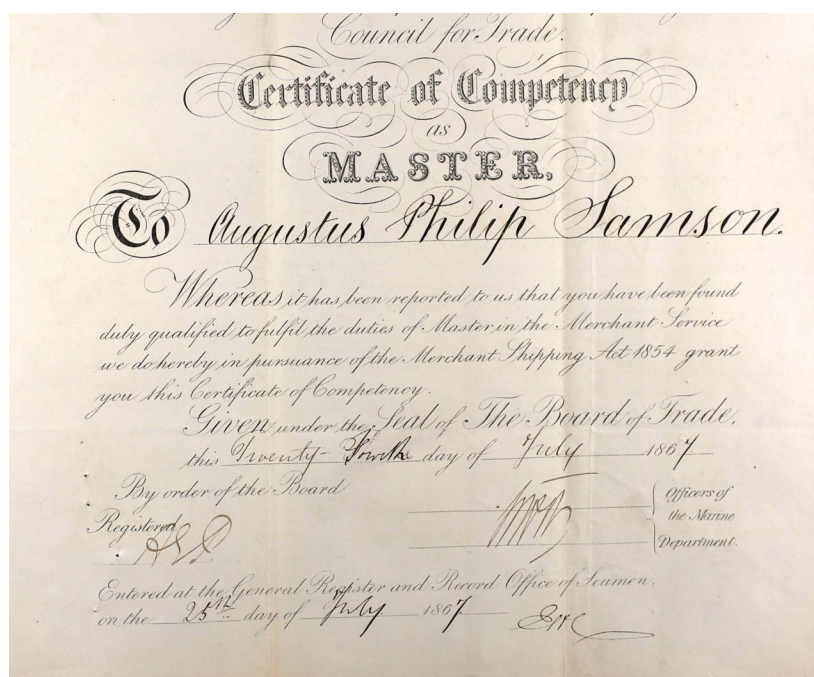 Council for Trade.
Certificate of Competency
as
MASTER,
To Augustus Philip Samson.
Whereas it has been reported to us that you have been found
duly qualified to fulfil the duties of Master in the Merchant Service
we do hereby in pursuance of the Merchant Shipping Act 1854 grant
you this Certificate of Competency.
Given under the Seal of The Board of Trade,
this Twenty-Fourth day of July 1867
By order of the Board
Officers of
the Marine
Department.
Registered
Entered at the General Register and Record Office of Seamen.
on the 25th day of July 1867